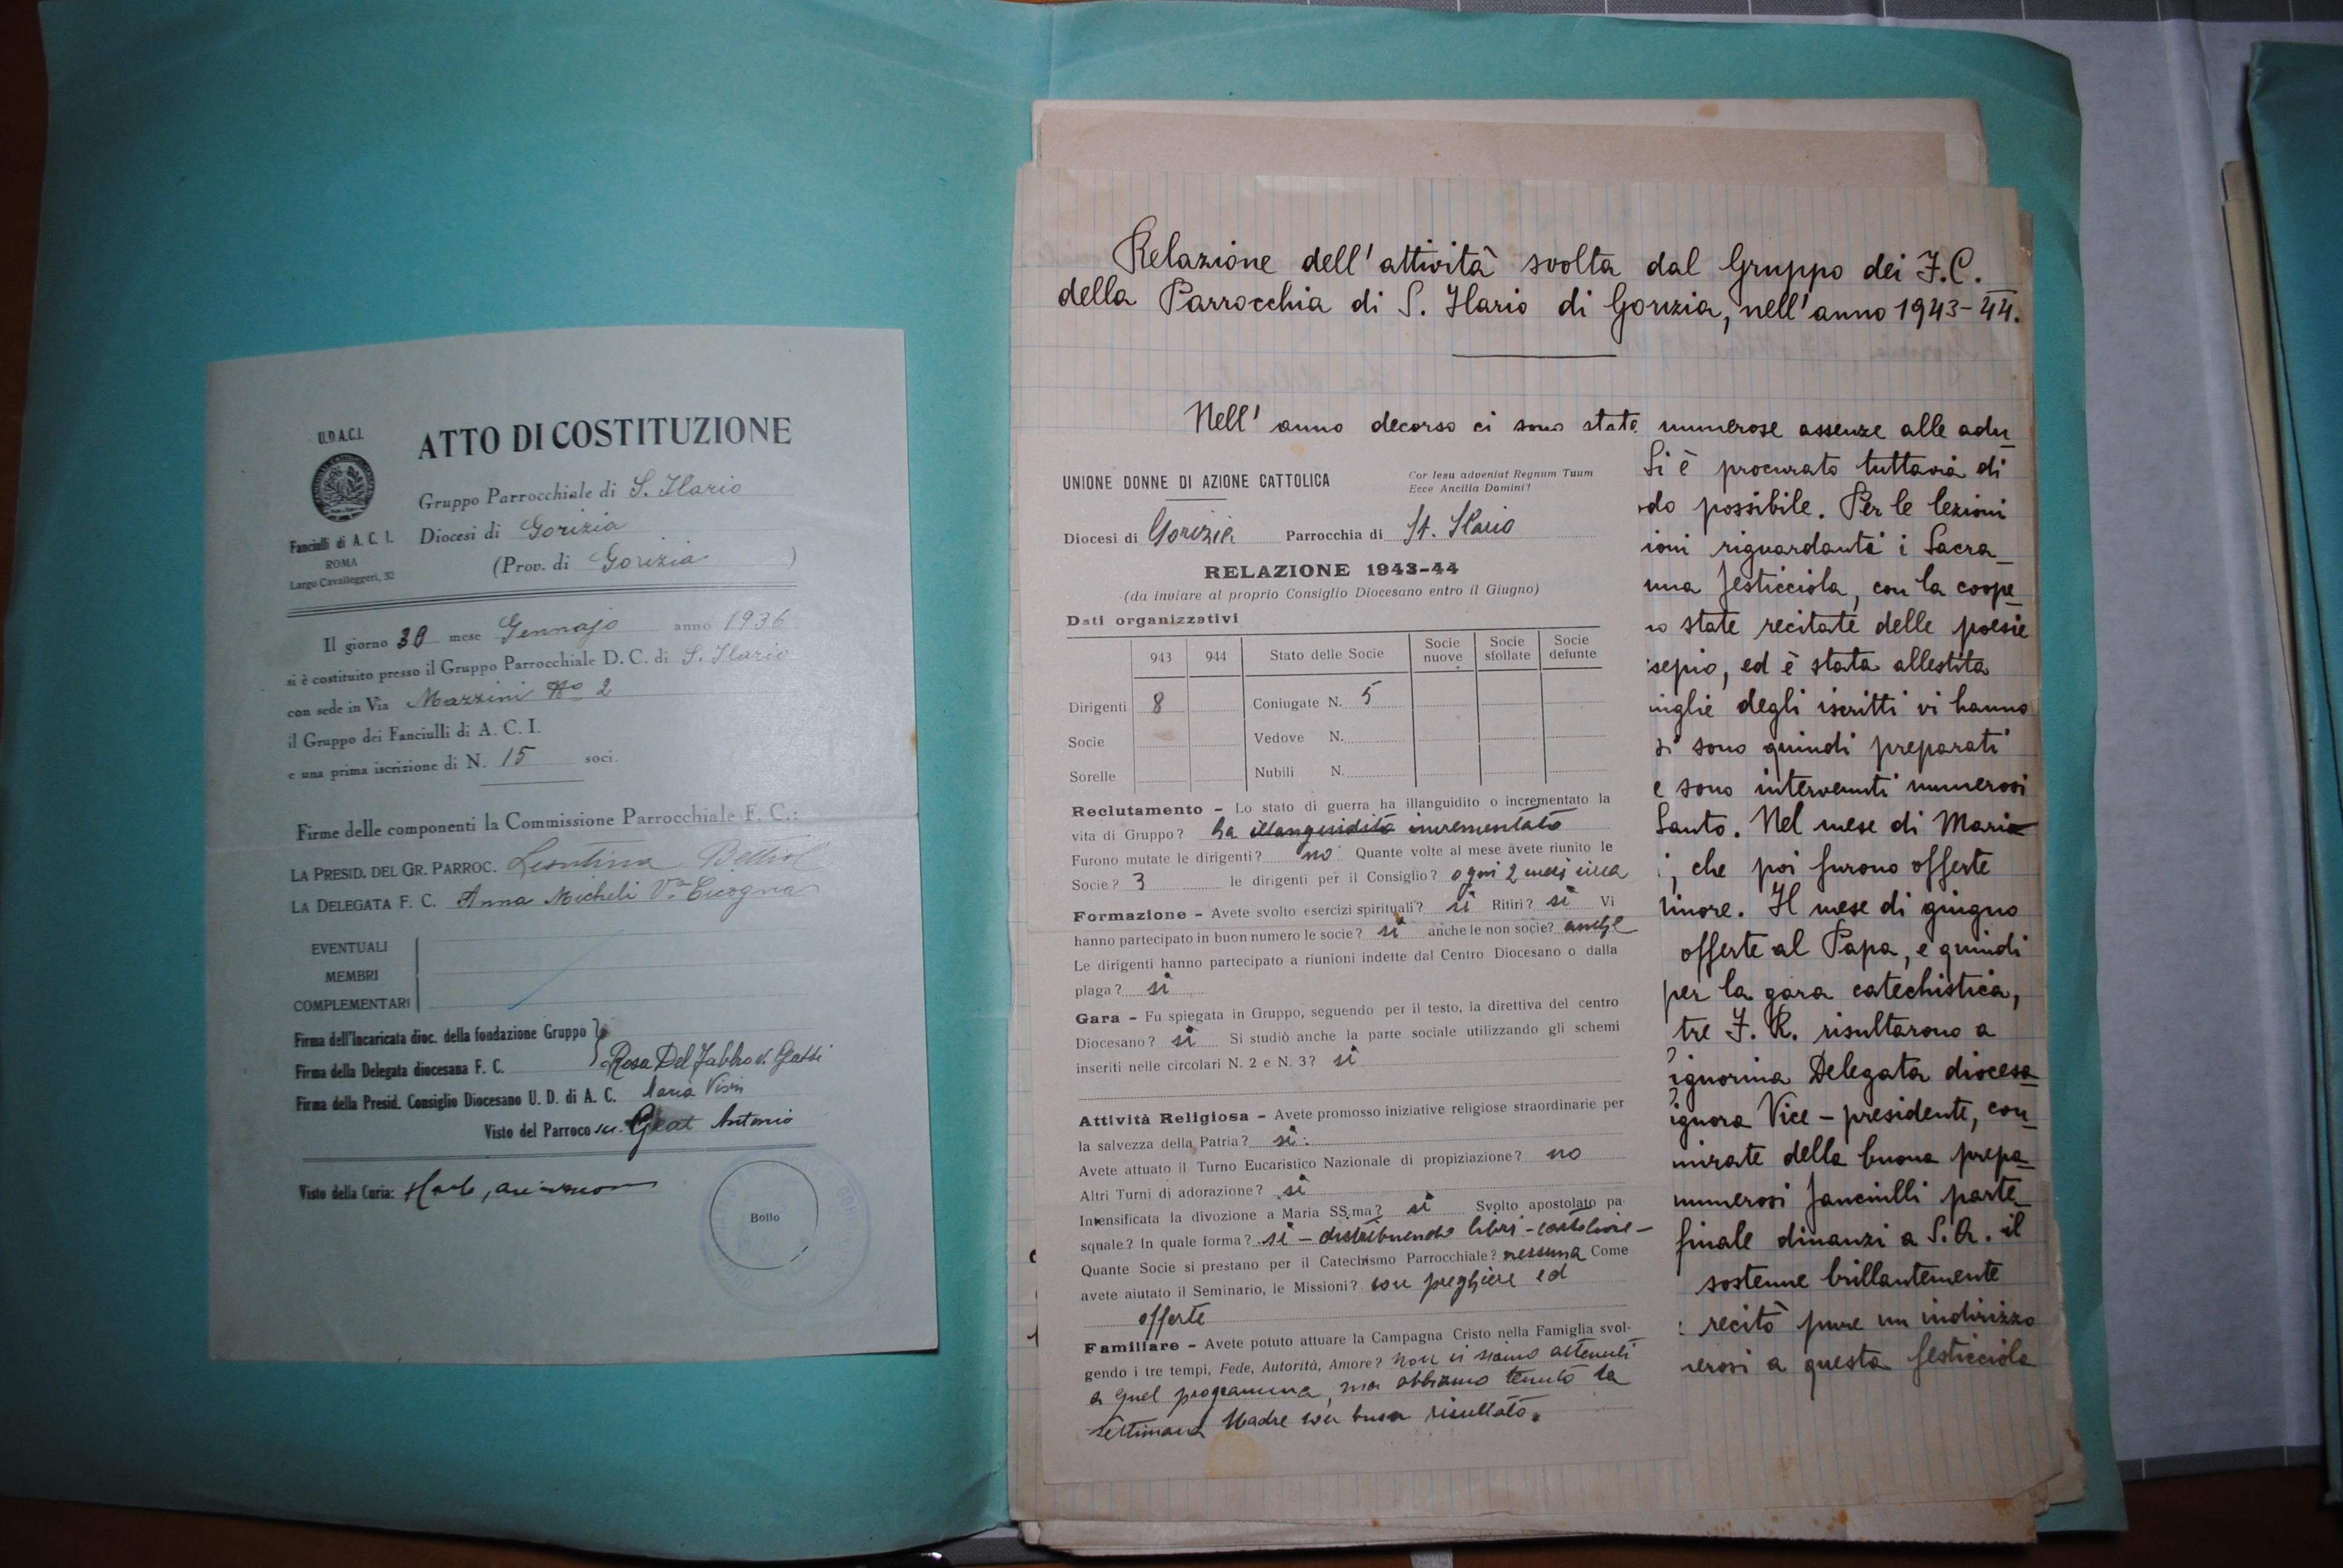 U.D.A.C.I.
Fanciulli di A. C. I.
ROMA
Largo Cavalleggeri, 32
ATTO DI COSTITUZIONE
Gruppo Parrocchiale di S. Ilario
Diocesi di Gorizia
(Prov. di Gorizia )
Il giorno 30 mese Gennajo anno 1936
si è costituito presso il Gruppo Parrocchiale D. C. di S. Ilario
con sede in Via Mazzini No 2
il Gruppo dei Fanciulli di A. C. I.
e una prima iscrizione di N. 15 soci.
Firme delle componenti la Commissione Parrocchiale F. C.:
LA PRESID. DEL GR. PARROC. Leontina Bettiol
LA DELEGATA F. C. Anna Micheli Va Cicogna
EVENTUALI
MEMBRI
COMPLEMENTARI
Firma dell'Incaricata dioc. della fondazione Gruppo
Firma della Delegata diocesana F. C. Rosa Del Fabbro v. Gatti
Firma della Presid. Consiglio Diocesano U. D. di A. C. Maria
Visto del Parroco Antonio
Visto della Curia:
Bollo
Relazione dell'attività svolta dal Gruppo dei F.C.
della Parrocchia di S. Ilario di Gorizia, nell'anno 1943-44.
Nell' anno decorso ci sono state numerose assenze alle adu
Si è procurato tuttavia di
do possibile. Per le lezioni
ioni riguardanti i Sacra
una festicciola, con la coope
o state recitate delle poesie
sepio, ed è stata allestita
miglie degli iscritti vi hanno
si sono quindi preparati
e sono intervenuti numerosi
Santo. Nel mese di Maria
i, che poi furono offerte
inore. Il mese di giugno
offerte al Papa, e quindi
per la gara catechistica,
tre F. R. risultarono a
ignorina Delegata diocesa
ignora Vice-presidente, con
mirate della buona prepa
numerosi fanciulli parte
finale dinanzi a S. A. il
sostenne brillantemente
recitò pure un indirizzo
erosi a questa festicciola
UNIONE DONNE DI AZIONE CATTOLICA
Cor Iesu adveniat Regnum Tuum
Ecce Ancilla Domini!
Diocesi di Gorizia Parrocchia di St. Ilario
RELAZIONE 1943-44
(da inviare al proprio Consiglio Diocesano entro il Giugno)
Dati organizzativi
943 944 Stato delle Socie Socie nuove Socie sfollate Socie defunte
Dirigenti 8 Coniugate N. 5
Socie Vedove N.
Sorelle Nubili N.
Reclutamento - Lo stato di guerra ha illanguidito o incrementato la
vita di Gruppo? ha illanguidito incrementato
Furono mutate le dirigenti? no Quante volte al mese avete riunito le
Socie? 3 le dirigenti per il Consiglio? ogni 2 mesi circa
Formazione - Avete svolto esercizi spirituali? si Ritiri? si Vi
hanno partecipato in buon numero le socie? si anche le non socie? anche
Le dirigenti hanno partecipato a riunioni indette dal Centro Diocesano o dalla
plaga? si
Gara - Fu spiegata in Gruppo, seguendo per il testo, la direttiva del centro
Diocesano? si Si studiò anche la parte sociale utilizzando gli schemi
inseriti nelle circolari N. 2 e N. 3? si
Attività Religiosa - Avete promosso iniziative religiose straordinarie per
la salvezza della Patria? si.
Avete attuato il Turno Eucaristico Nazionale di propiziazione? no
Altri Turni di adorazione? si
Intensificata la divozione a Maria SS.ma? si Svolto apostolato pa-
squale? In quale forma? si - distribuendo libri - cartoline -
Quante Socie si prestano per il Catechismo Parrocchiale? nessuna Come
avete aiutato il Seminario, le Missioni? con preghiere ed
offerte
Familiare - Avete potuto attuare la Campagna Cristo nella Famiglia svol-
gendo i tre tempi, Fede, Autorità, Amore? Non ci siamo attenuti
a quel programma, ma abbiamo tenuto la
settimana Madre con buon risultato.